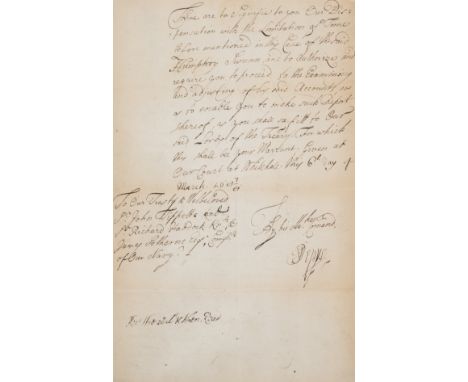 These are to signifie to you Our Dis-
pensation with the Limitation of Time
before mentioned in the Case of the said
Humphry
and to Authorize and
require you to proceed to the Examining
and adjusting of his said Accounts, so
as to enable you to make such Report
thereof, as you shall see fitt to Our
said Lords of the Treasury. For which
this shall be your Warrant. Given at
Our Court at Whitehall this 6th day of
March
To Our Trusty & Welbeloved
Sr. John Tippetts and
Sr. Richard Haddock Kts. &
James Sotherne Esqr.
of Our Navy.
By his
Comand
S Pepys